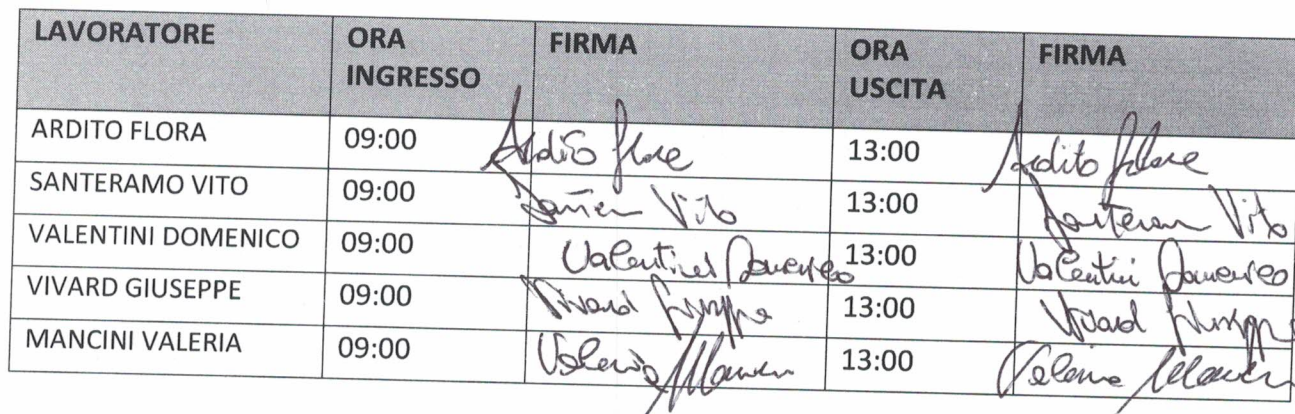 LAVORATORE ORA INGRESSO FIRMA ORA USCITA FIRMA
ARDITO FLORA 09:00 Ardito Flora 13:00 Ardito Flora
SANTERAMO VITO 09:00 Vito 13:00 Santeram Vito
VALENTINI DOMENICO 09:00 Valentini Domenico 13:00 Valentini Domenico
VIVARD GIUSEPPE 09:00 Vivard Giuseppe 13:00 Vivard Giuseppe
MANCINI VALERIA 09:00 Valeria Mancini 13:00 Valeria Mancini